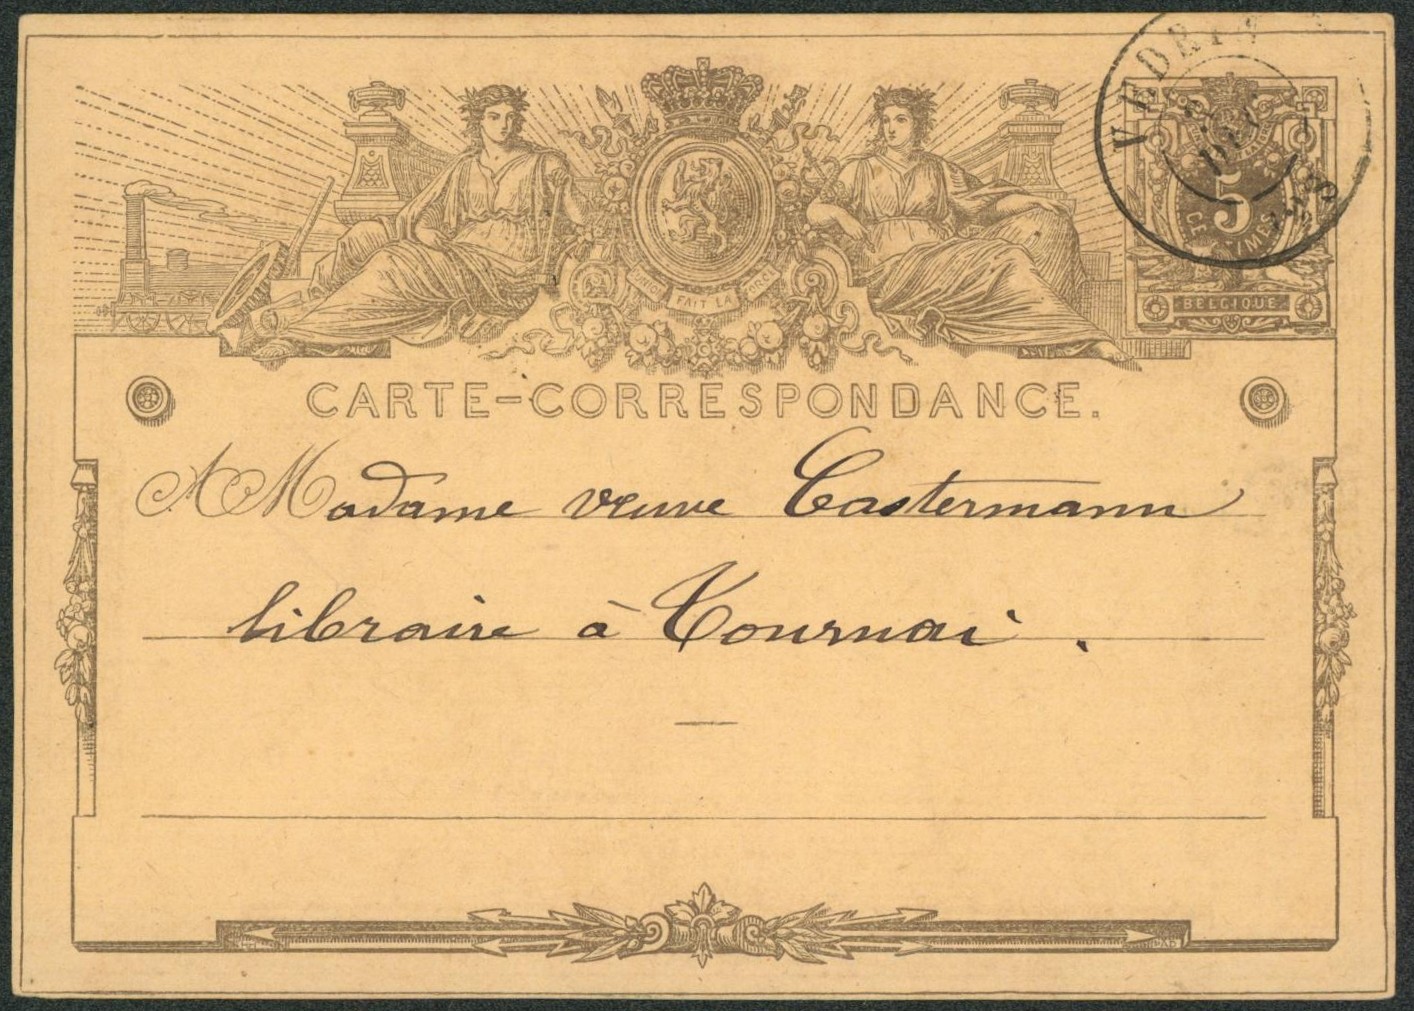 VEDRIN
5
CENTIMES
BELGIQUE
FAIT LA FORCE
CARTE-CORRESPONDANCE.
A Madame veuve Castermann
libraire à Tournai.